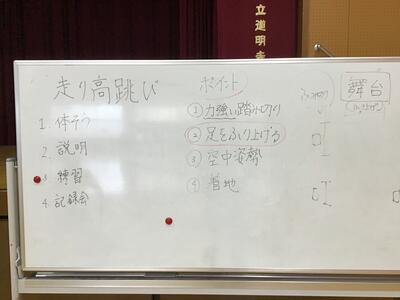 立道明寺
走り高跳び
1. 体そう
2. 説明
3. 練習
4. 記録会
ポイント
① 力強い踏み切り
② 足をふり上げる
③ 空中姿勢
④ 着地
舞台